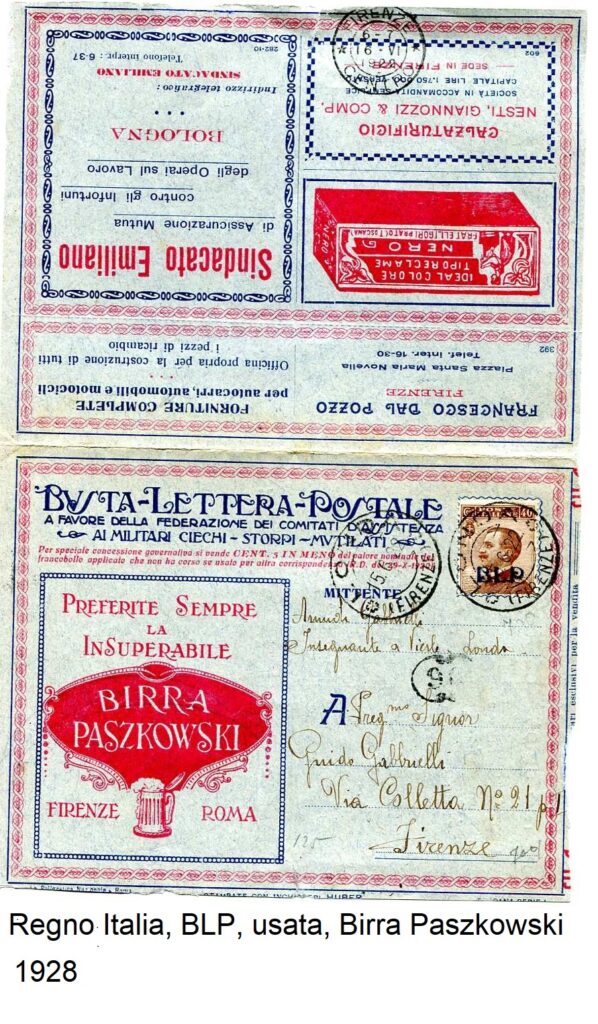 FRANCESCO DAL POZZO
FIRENZE
Piazza Santa Maria Novella
Telef. inter. 16-30
392
FORNITURE COMPLETE
per autocarri, automobili e motocicli
Officina propria per la costruzione di tutti
i pezzi di ricambio
IDEAL COLORE
TIPO RECLAME
NERO
FRATELLI GORI PRATO (TOSCANA
NERO
Sindacato Emiliano
di Assicurazione Mutua
contro gli Infortuni
degli Operai sul Lavoro
BOLOGNA
Indirizzo telegrafico:
SINDACATO EMILIANO
Telefono interpr. 6-37
282-10
CALZATURIFICIO
NESTI, GIANNOZZI & COMP.
SOCIETÀ IN ACCOMANDITA SEMPLICE
CAPITALE LIRE 1.750.000
SEDE IN FIRENZE
602
FIRENZE
BUSTA-LETTERA-POSTALE
A FAVORE DELLA FEDERAZIONE DEI COMITATI D'ASSISTENZA
AI MILITARI CIECHI - STORPI - MUTILATI
Per speciale concessione governativa si vende CENT. 5 IN MENO del valore nominale del
francobollo applicato che non ha corso se usato per altra corrispondenza
40
B.L.P.
FIRENZE
FIRENZE
MITTENTE
Insegnante a Londa
PREFERITE SEMPRE
LA
INSUPERABILE
BIRRA
PASZKOWSKI
FIRENZE ROMA
A Preg.mo Signor
Guido Gabbrielli
Via Colletta No 21
Firenze
125
esclusivi per la vendita
Regno Italia, BLP, usata, Birra Paszkowski
1928